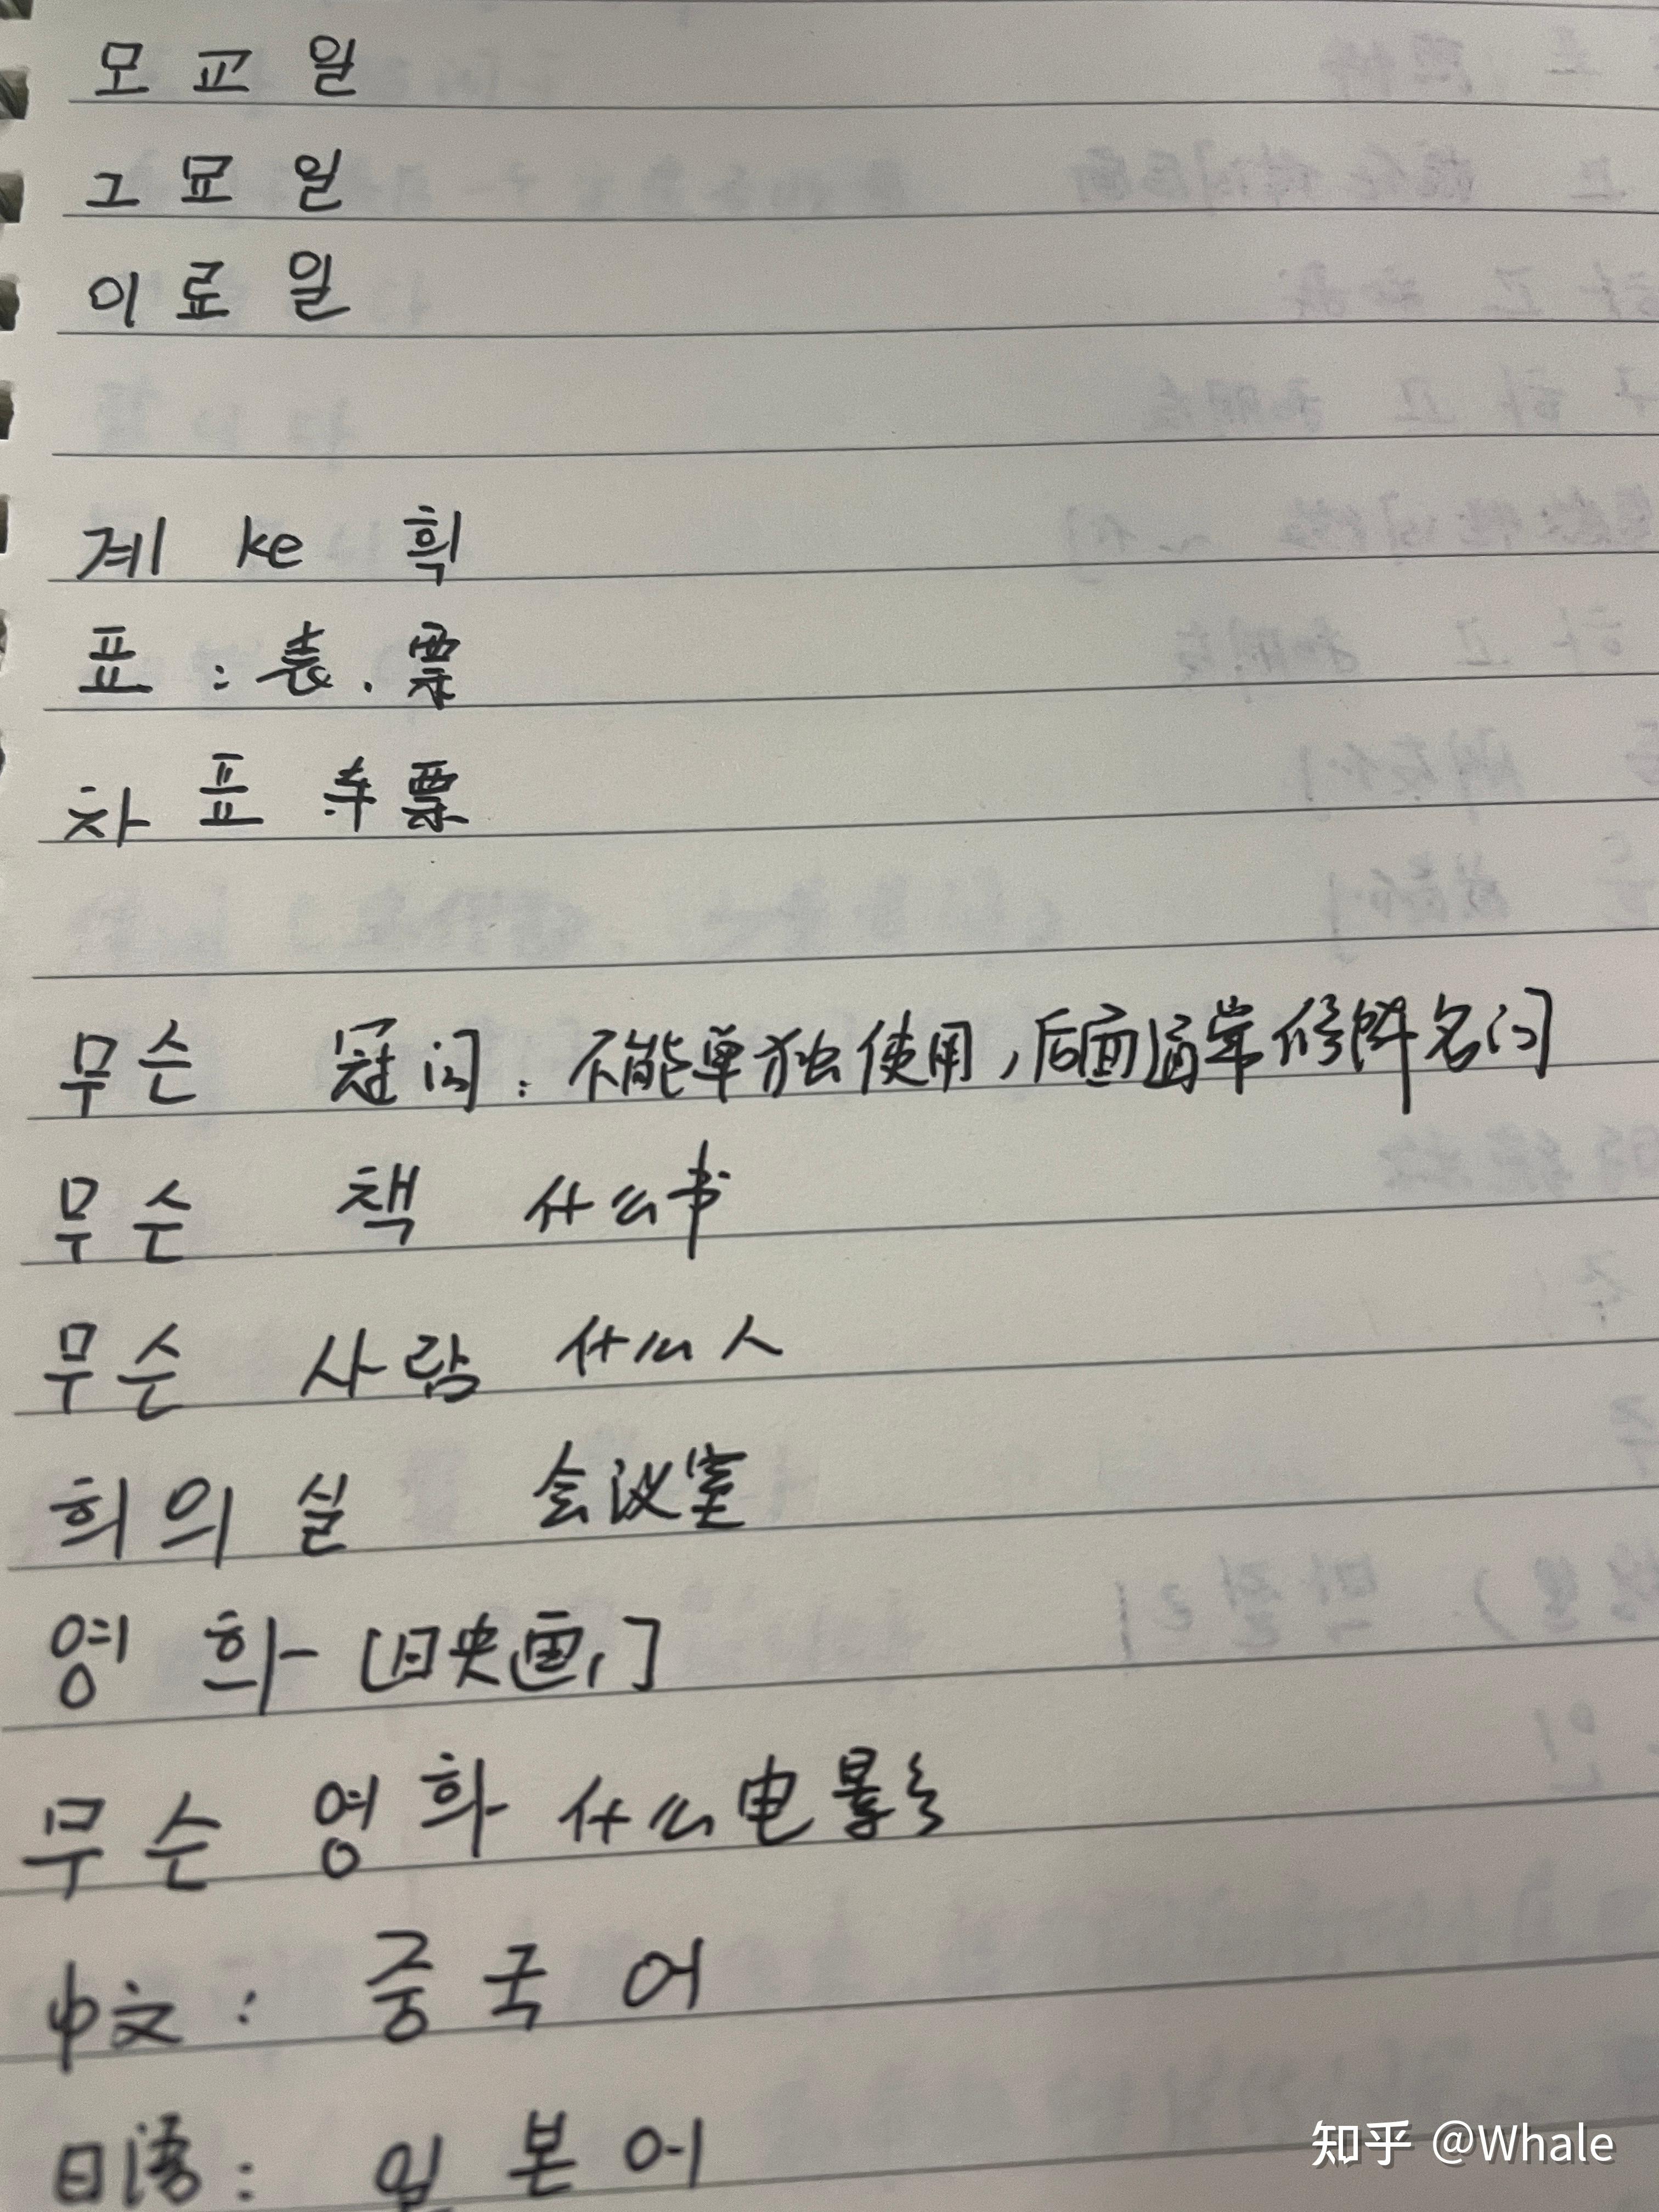 모 교 일
그 묘 일
이 료 일
계 ke 획
표 : 表 . 票
차 표 车票
무슨 冠词 : 不能单独使用，后面通常修饰名词
무슨 책 什么书
무슨 사람 什么人
희의실 会议室
영화 [映画]
무슨 영화 什么电影
中文 : 중국어
日语 : 일본어
知乎 @Whale